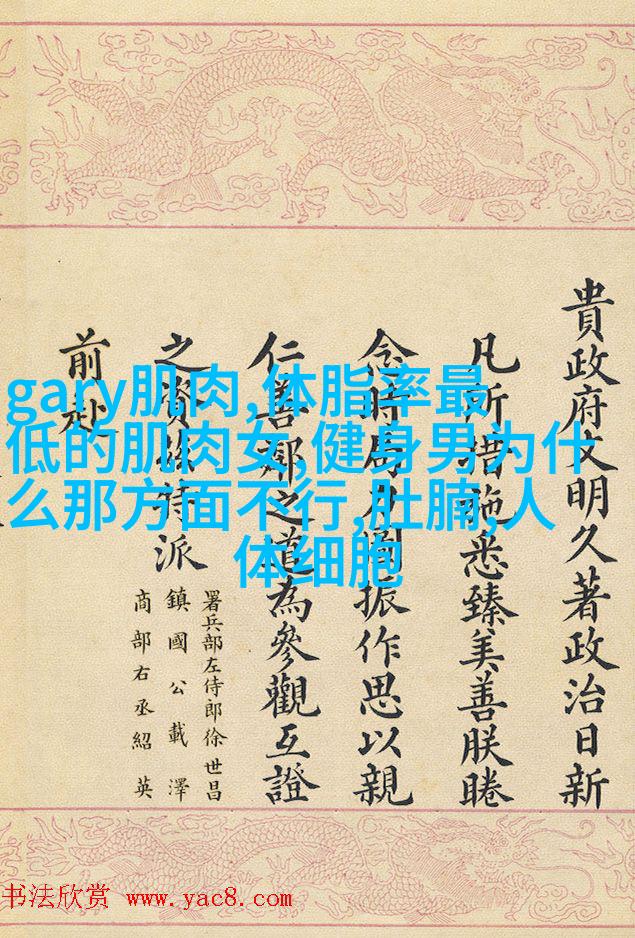 貴政府文明久著政治日新
凡所措施悉臻美善朕睠
念時局力圖振作思以親
仁善鄰之道為參觀互證
之資茲特派
署兵部左侍郎徐世昌
鎮國公載澤
商部右丞紹英
前赴
gary肌肉,体脂率最
低的肌肉女,健身男为什
么那方面不行,肚腩,人
体细胞
书法欣赏 www.yac8.com